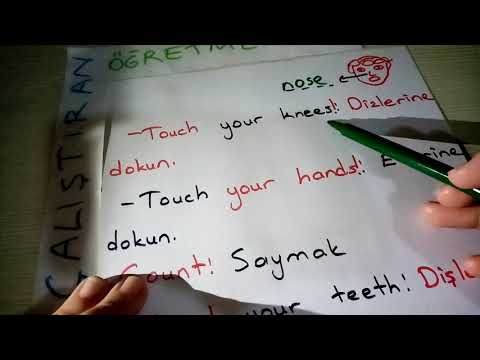 ÇALIŞTIRAN
ÖĞRETME
nose
-Touch your knees! Dizlerine
dokun.
-Touch your hands!
dokun.
Count! Saymak
your teeth!